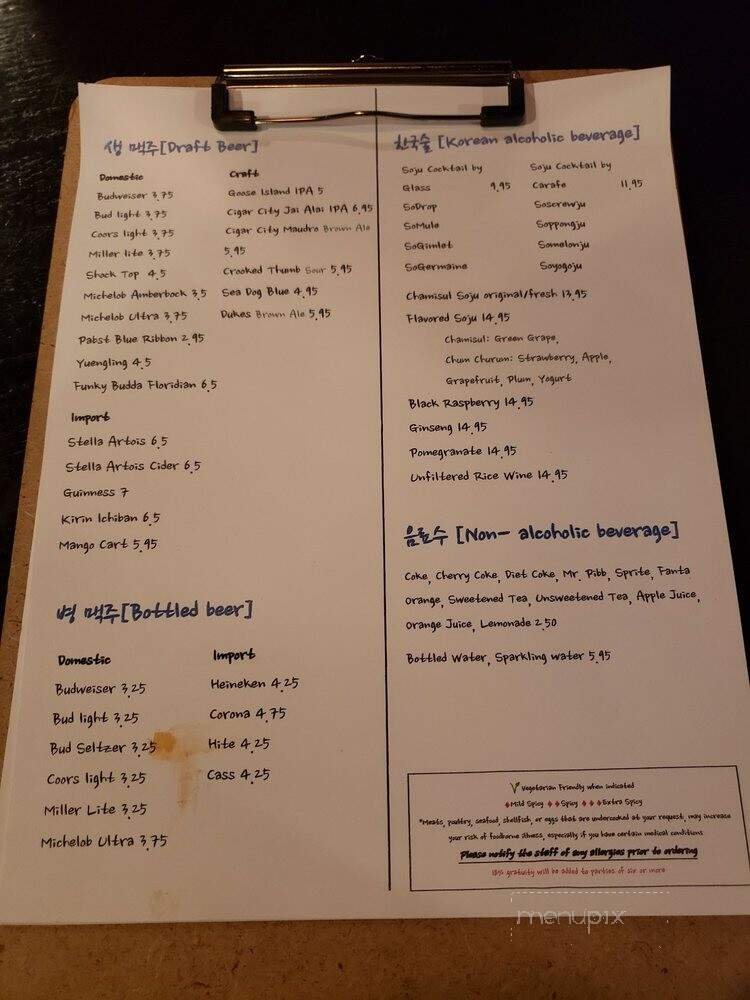 생 맥주[Draft Beer]
Domestic
Budweiser 3.75
Bud light 3.75
Coors light 3.75
Miller lite 3.75
Shock Top 4.5
Michelob Amberbock 3.5
Michelob Ultra 3.75
Pabst Blue Ribbon 2.95
Yuengling 4.5
Funky Budda Floridian 6.5
Import
Stella Artois 6.5
Stella Artois Cider 6.5
Guinness 7
Kirin Ichiban 6.5
Mango Cart 5.95
Craft
Goose Island IPA 5
Cigar City Jai Alai IPA 6.95
Cigar City Maudro Brown Ale
5.95
Crooked Thumb Sour 5.95
Sea Dog Blue 4.95
Dukes Brown Ale 5.95
병 맥주[Bottled beer]
Domestic
Budweiser 3.25
Bud light 3.25
Bud Seltzer 3.25
Coors light 3.25
Miller Lite 3.25
Michelob Ultra 3.75
Import
Heineken 4.25
Corona 4.75
Hite 4.25
Cass 4.25
한국술 [Korean alcoholic beverage]
Soju Cocktail by
Glass 9.95
SoDrop
SoMule
SoGimlet
SoGermaine
Soju Cocktail by
Carafe 11.95
Soscrewju
Soppongju
Somelonju
Soyogoju
Chamisul Soju original/fresh 13.95
Flavored Soju 14.95
Chamisul: Green Grape,
Chum Churum: Strawberry, Apple,
Grapefruit, Plum, Yogurt
Black Raspberry 14.95
Ginseng 14.95
Pomegranate 14.95
Unfiltered Rice Wine 14.95
음료수 [Non- alcoholic beverage]
Coke, Cherry Coke, Diet Coke, Mr. Pibb, Sprite, Fanta
Orange, Sweetened Tea, Unsweetened Tea, Apple Juice,
Orange Juice, Lemonade 2.50
Bottled Water, Sparkling water 5.95
Vegetarian Friendly when indicated
Mild Spicy Spicy Extra Spicy
*Meats, poultry, seafood, shellfish, or eggs that are undercooked at your request, may increase
your risk of foodborne illness, especially if you have certain medical conditions
Please notify the staff of any allergies prior to ordering
18% gratuity will be added to parties of six or more
menupix